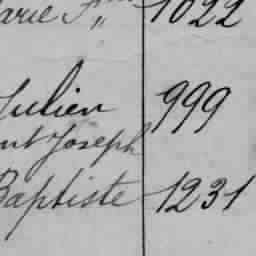 arie F 1022
Julien 999
nt Joseph
Baptiste 1231